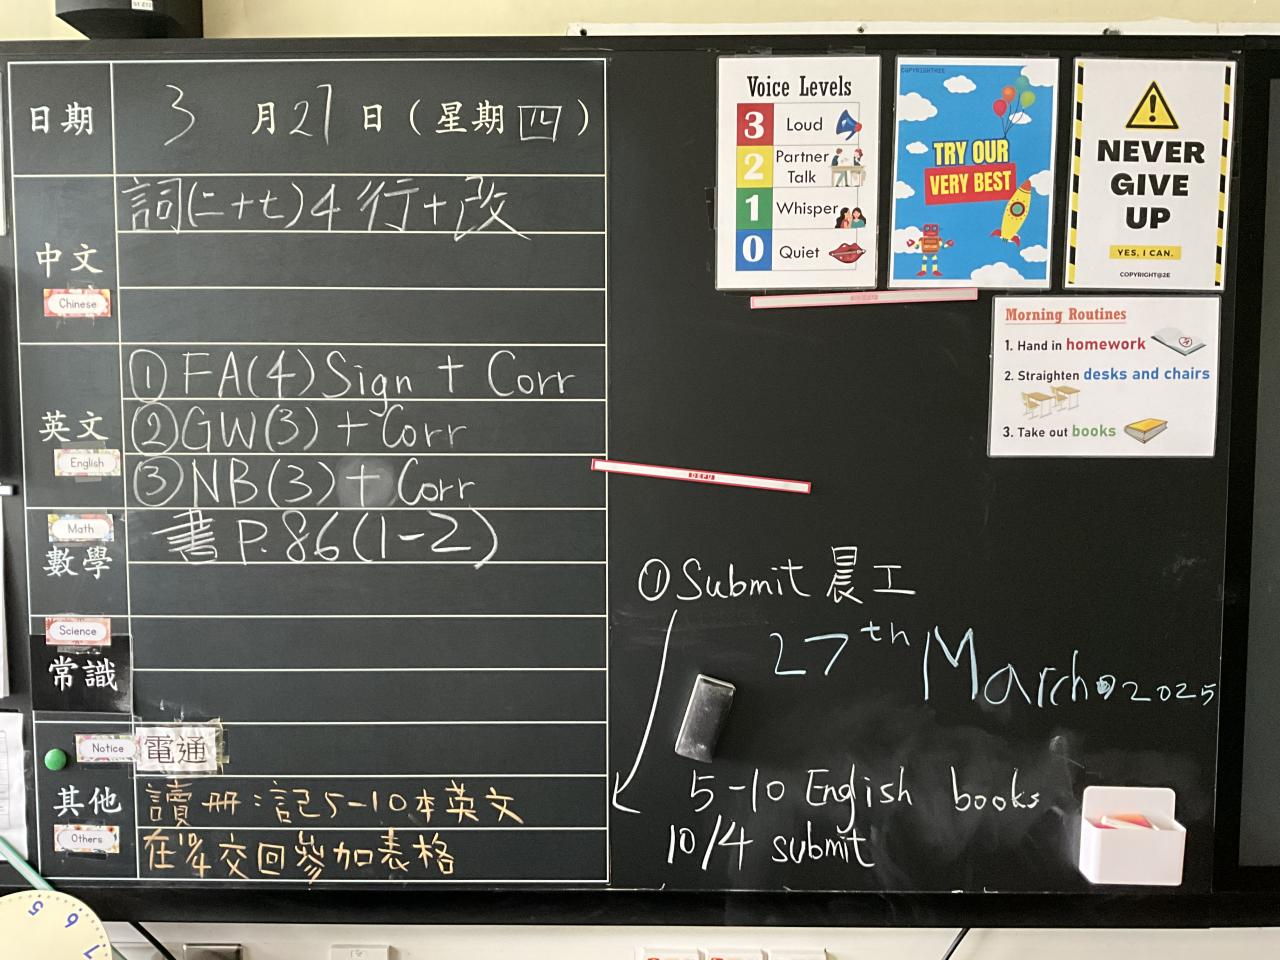 日期
3月27日(星期四)
中文
Chinese
詞(二+七)4行+改
英文
English
①FA(4)Sign + Corr
②GW(3)+Corr
③NB(3)+Corr
Math
數學
書P.86(1-2)
Science
常識
Notice
電通
其他
Others
讀冊:記5-10本英文
在10/4交回參加表格
Voice Levels
3 Loud
2 Partner Talk
1 Whisper
0 Quiet
COPYRIGHT@2E
TRY OUR
VERY BEST
NEVER
GIVE
UP
YES, I CAN.
COPYRIGHT@2E
Morning Routines
1. Hand in homework
2. Straighten desks and chairs
3. Take out books
①Submit 晨工
27th March 2025
5-10 English books
10/4 submit
5
6
7